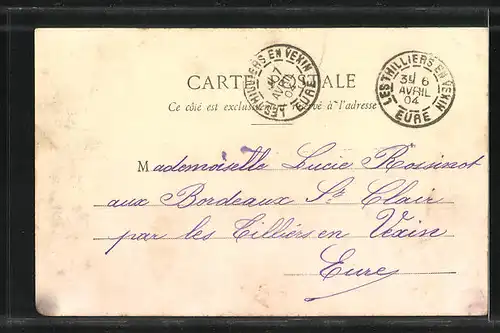 LES THILLIERS EN VEXIN
AVRIL
04
EURE
LES THILLIERS EN VEXIN
3E 6
AVRIL
04
EURE
CARTE POSTALE
Ce côté est exclusivement réservé à l'adresse
Mademoiselle Lucie Rossinot
aux Bordeaux St Clair
par les Tilliers en Vexin
Eure